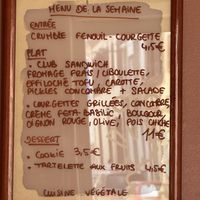 MENU DE LA SEMAINE
ENTRÉE
CRUMBLE FENOUIL-COURGETTE
4,5€
PLAT
• CLUB SANDWICH
FROMAGE FRAIS/CIBOULETTE,
EFFILOCHÉ TOFU, CAROTTE,
PICKLES CONCOMBRE + SALADE
• COURGETTES GRILLÉES, CONCOMBRE,
CRÈME FETA-BASILIC, BOULGOUR,
OIGNON ROUGE, OLIVE, POIS CHICHE
11€
DESSERT
• COOKIE 3,5€
• TARTELETTE AUX FRUITS 4,5€
CUISINE VÉGÉTALE